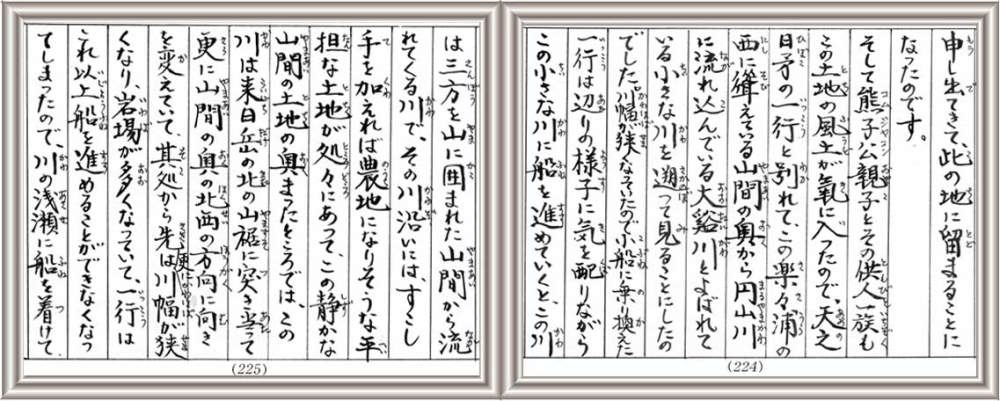 申し出てきて、此の地に留まることに
なったのです。
そして熊子公親子とその供人一族も
この土地の風土が氣に入ったので、天之
日矛の一行と別れて、この楽々浦の
西に聳えている山間の奥から円山川
に流れ込んでいる大谿川とよばれて
いる小さな川を遡って見ることにしたの
でした。川幅が狭くなっていたので小船に乗り換えた
一行は辺りの様子に気を配りながら
この小さな川に船を進めていくと、この川
(224)
は三方を山に囲まれた山間から流
れてくる川で、その川沿いには、すこし
手を加えれば農地になりそうな平
担な土地が処々にあって、この静かな
山間の土地の奥まったところでは、この
川は来日岳の北の山裾に突き当って
更に山間の奥の北西の方向に向き
を変えていて、其処から先は川幅が狭
くなり、岩場が多くなっていて、一行は
これ以上船を進めることができなくなっ
てしまったので、川の浅瀬に船を着けて
(225)